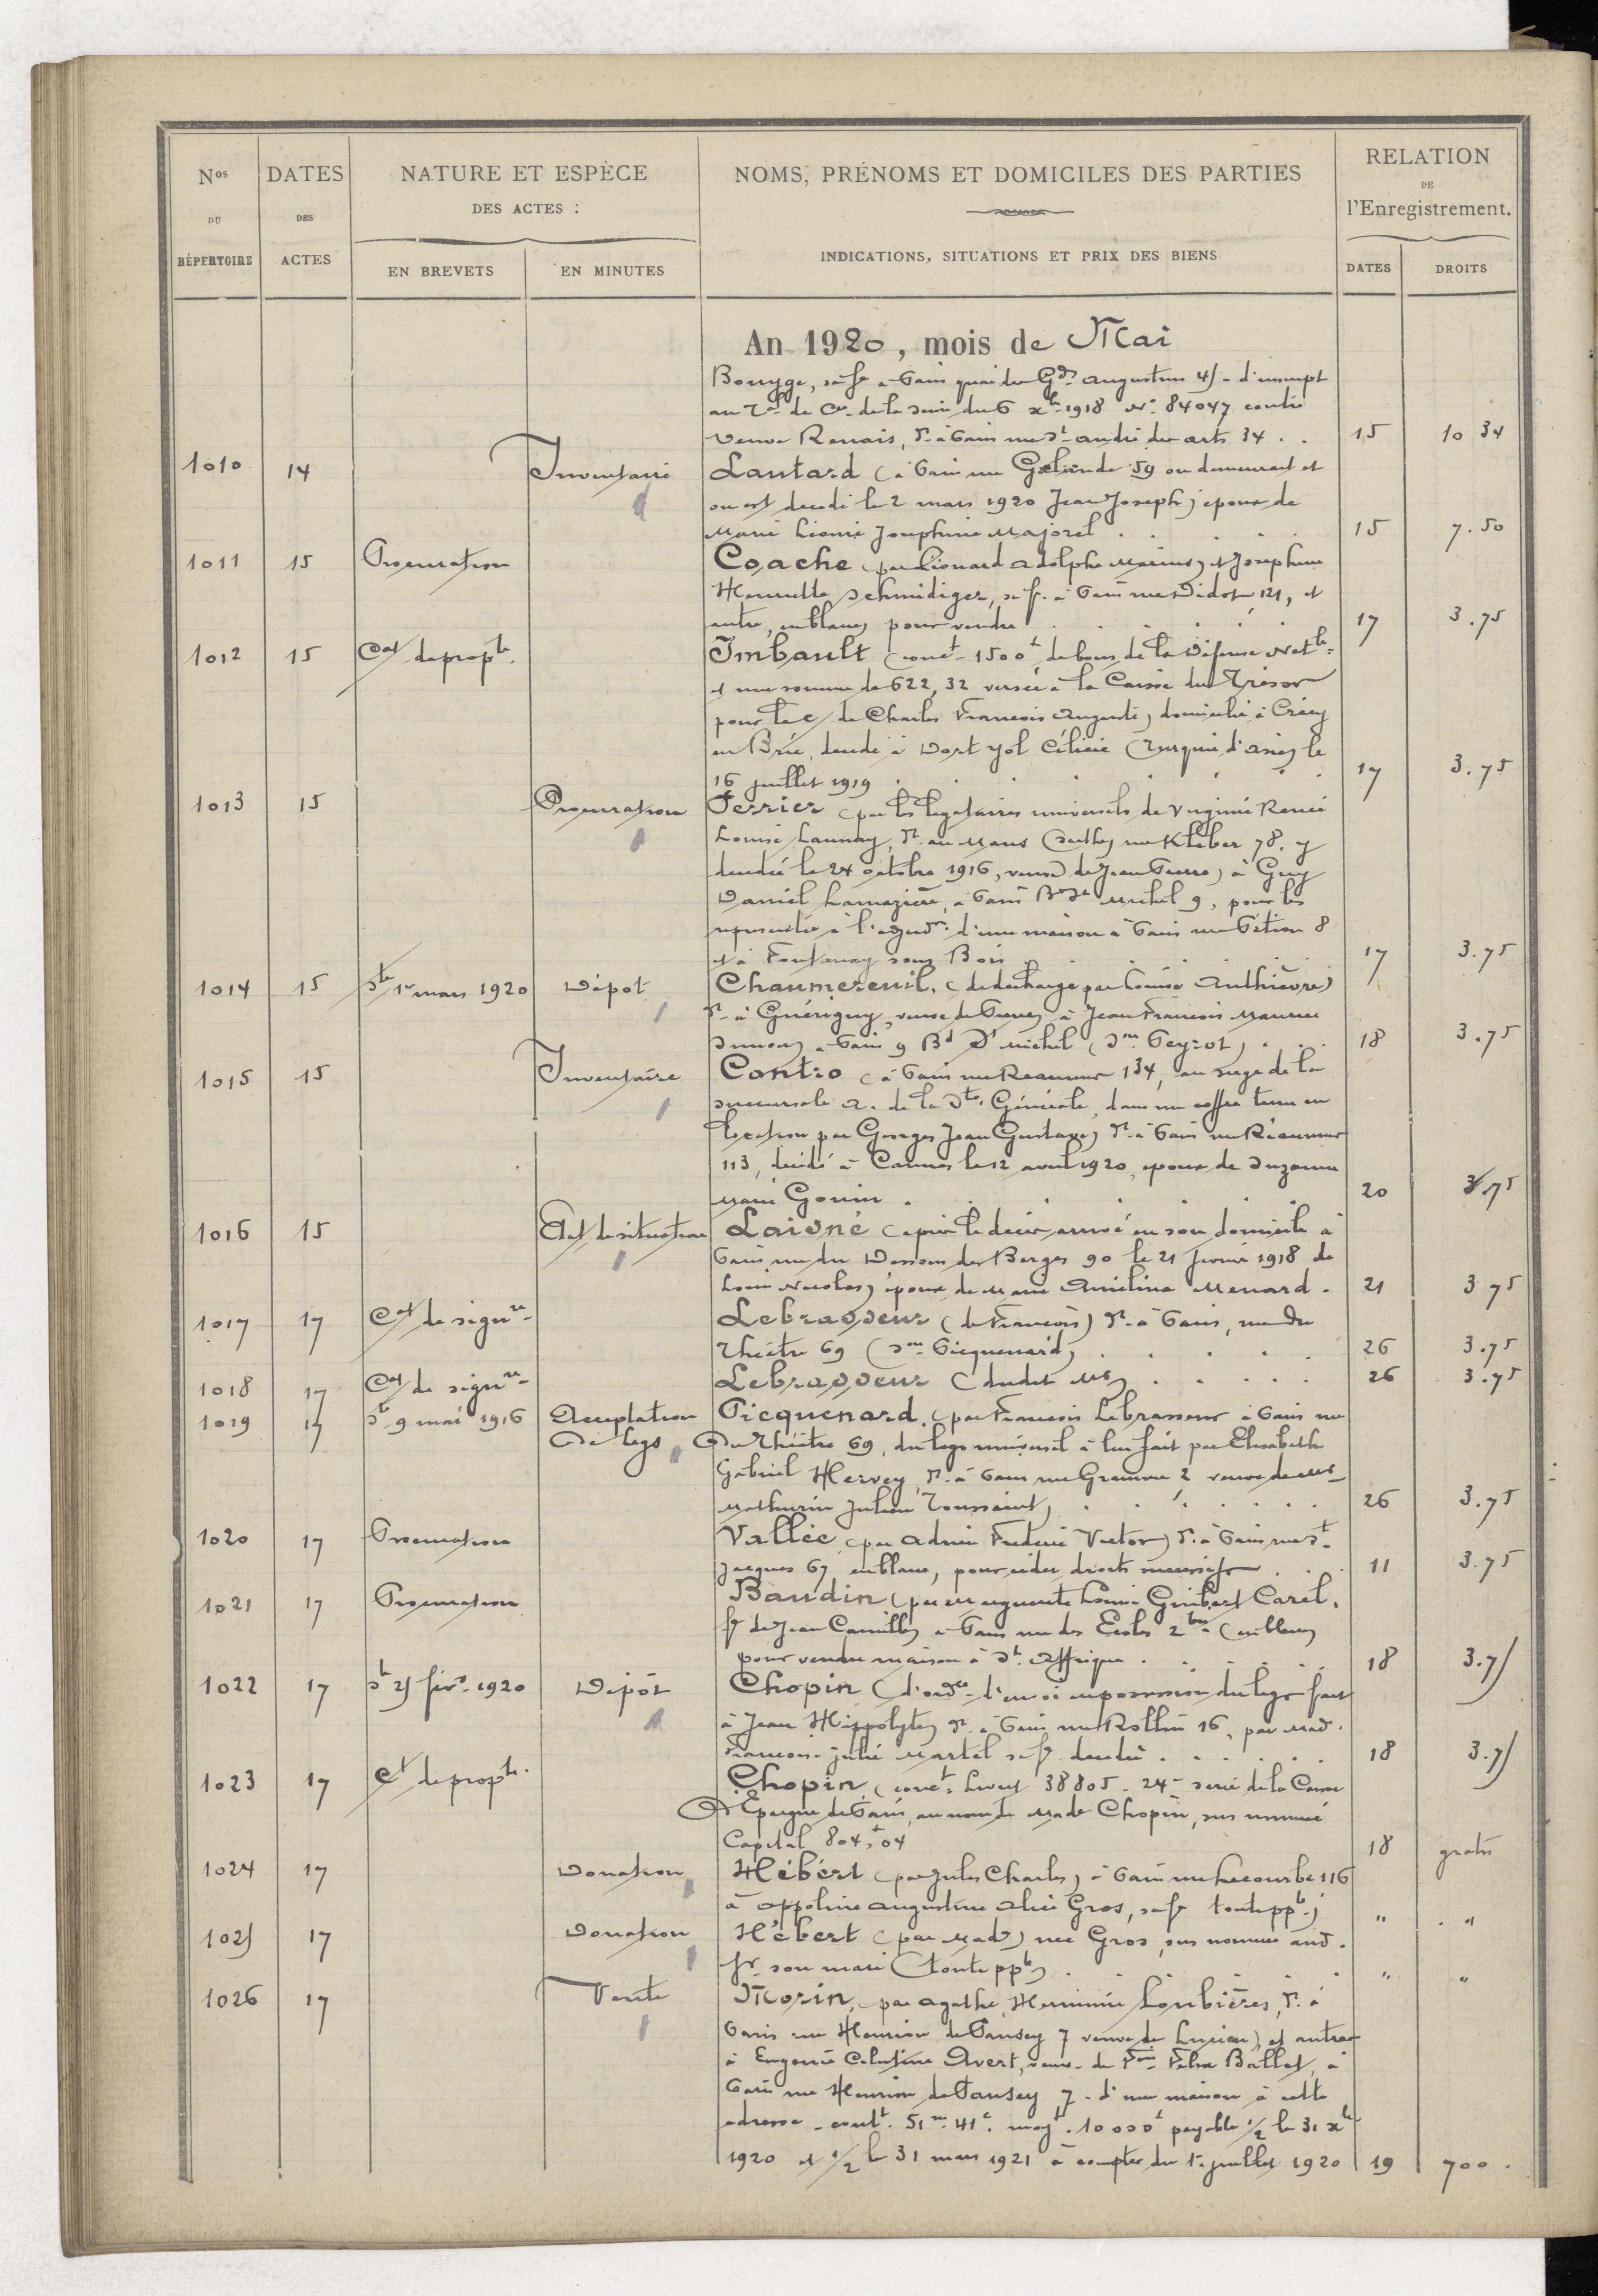 Nos DU RÉPERTOIRE
DATES DES ACTES
NATURE ET ESPÈCE DES ACTES :
EN BREVETS
EN MINUTES
NOMS, PRÉNOMS ET DOMICILES DES PARTIES
INDICATIONS, SITUATIONS ET PRIX DES BIENS
RELATION DE l'Enregistrement.
DATES
DROITS
An 1920, mois de Mai
Bouyge, sa fe à Paris quai des Gds Augustins 45 - d'
au de la Seine du 6 xbre 1918 No 84047 contre
veuve Renais, dt à Paris rue St André des arts 34 . . 15 10 34
1010 14 Inventaire Lautard (à Paris rue Galande 59 où demeurait et
où est décédé le 2 mars 1920 Jean Joseph) époux de
Marie Léonie Joséphine Majorel . . . 15 7.50
1011 15 Procuration Coache (par Léonard Adolphe Marius) et Joséphine
Henriette Schmidiger, sa fe à Paris rue Didot 121, et
autre, en blanc, pour vendre . . . 17 3.75
1012 15 Cat de propté Imbault (conct 1500f de bons de la Défense Natle
et une somme de 622,32 versée à la Caisse du Trésor
pour le c/ de Charles François Auguste) domicilié à Crécy
en Brie, décédé à Dort Yol Cilicie (Turquie d'Asie) le
16 juillet 1919 . . . 17 3.75
1013 15 Procuration Terrier (par les légataires universels de Virginie Renée
Louise Launay, dt au Mans (Sarthe) rue Kléber 78, y
décédée le 24 octobre 1916, veuve de Jean Pierre) à Guy
Daniel Lamazière, à Paris Bd St Michel 9, pour les
représenter à l'adjudon d'une maison à Paris rue Pétion 8
et à Fontenay sous Bois . . . 17 3.75
1014 15 Ste 1er mars 1920 Dépôt Chaumereuil, (de décharge par Louise Authièvre)
dt à Guérigny, veuve de Pierre, à Jean François Maurice
à Paris 9 Bd St Michel (Son Peyrot) . . . 18 3.75
1015 15 Inventaire Contro (à Paris rue Réaumur 134, au siège de la
succursale A. de la Sté Générale, dans un coffre tenu en
location par Georges Jean Gustave) dt à Paris rue Réaumur
113, décédé à Cannes le 12 avril 1920, époux de Suzanne
Marie Gouin . . . 20 3.75
1016 15 Act de situation Laisné (après le décès arrivé en son domicile à
Paris rue du Dessous des Berges 90 le 21 février 1918 de
Louis Nicolas) époux de Marie Amélina Menard . 21 3 75
1017 17 Cat de signre Lebrasseur (de François) dt à Paris, rue du
Théâtre 69 (Son Picquenard) . . . 26 3.75
1018 17 Cat de signre Lebrasseur (dudit Mr) . . . 26 3.75
1019 17 St 9 mai 1916 Acceptation de legs Picquenard (par François Lebrasseur à Paris rue
du Théâtre 69, du legs universel à lui fait par Elisabeth
Gabriel Hervey, dt à Paris rue Gramme 2 veuve de Mr
Mathurin Julien Toussaint) . . . 26 3.75
1020 17 Procuration Vallée (par Adrien Frédéric Victor) dt à Paris rue St
Jacques 67 en blanc, pour céder droits successifs . . . 11 3.75
1021 17 Procuration Baudin (par Marguerite Louise Guibert Carel,
fe de Jean Camille) à Paris rue des Ecoles 2bis (en blanc)
pour vendre maison à St Affrique . . . 18 3.75
1022 17 St 25 févr 1920 Dépôt Chopin (d'ordce d'envoi en possession du legs fait
à Jean Hippolyte) dt à Paris rue Rollin 16, par Made
Françoise Julie Martel sa fe décédée . . . 18 3.75
1023 17 Ct de propté Chopin (conct Livret 38805 - 24e série de la Caisse
d'Epargne de Paris, au nom de Made Chopin, sus nommée
Capital 804f04 18 gratis
1024 17 Donation Hébert (par Jules Charles) à Paris rue Lecourbe 116
à Appoline Augustine Alice Gros, sa fe toute ppté) " "
1025 17 Donation Hébert (par Made) née Gros, sus nommée aud.
sr son mari (toute ppté) . . . " "
1026 17 Vente Morin, (par Agathe Herminie Loubières, dt à
Paris rue Henrion de Pansey 7 veuve de Lucien) et autres
à Eugénie Célestine Avert, veuve de Fois Félix Ballet, à
Paris rue Henrion de Pansey 7 - d'une maison à cette
adresse - contt 51m 41c moyt 10000f payable 1/2 le 31 xbre
1920 et 1/2 le 31 mars 1921 à compter du 1er juillet 1920 19 700 .